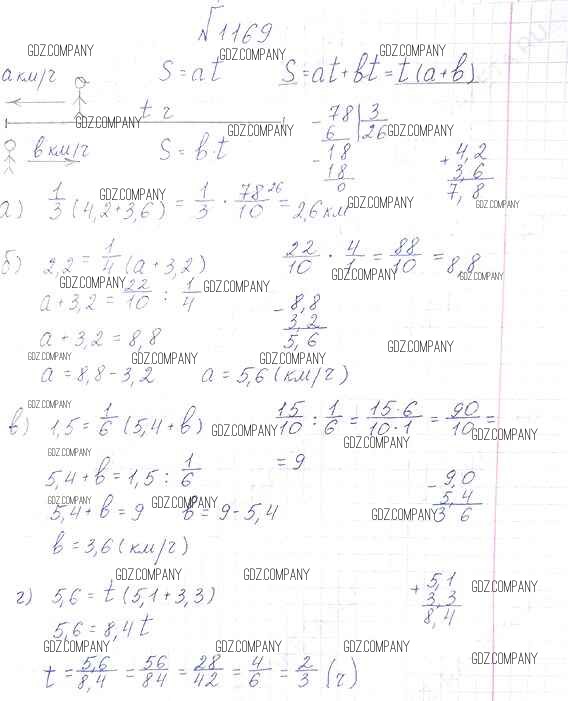 √1169
GDZ.COMPANY GDZ.COMPANY GDZ.COMPANY
a км/ч S = at S = at + bt = t(a+b)
t ч
GDZ.COMPANY GDZ.COMPANY GDZ.COMPANY
b км/ч S = bt
- 78 | 3
6 26
- 18
18
0
+ 4,2
3,6
7,8
GDZ.COMPANY GDZ.COMPANY GDZ.COMPANY
а) 1/3 (4,2+3,6) = 1/3 · 78 26/10 = 2,6 км
б) 2,2 = 1/4 (a + 3,2) 22/10 · 4/1 = 88/10 = 8,8
GDZ.COMPANY GDZ.COMPANY GDZ.COMPANY GDZ.COMPANY
a + 3,2 = 22/10 : 1/4
- 8,8
3,2
5,6
a + 3,2 = 8,8
GDZ.COMPANY GDZ.COMPANY GDZ.COMPANY GDZ.COMPANY
a = 8,8 - 3,2 a = 5,6 (км/ч)
GDZ.COMPANY
в) 1,5 = 1/6 (5,4 + b) 15/10 : 1/6 = 15·6/10·1 = 90/10 =
GDZ.COMPANY GDZ.COMPANY GDZ.COMPANY
GDZ.COMPANY
5,4 + b = 1,5 : 1/6 = 9
- 9,0
5,4
3 6
GDZ.COMPANY GDZ.COMPANY GDZ.COMPANY
5,4 + b = 9 b = 9 - 5,4
b = 3,6 (км/ч)
GDZ.COMPANY GDZ.COMPANY GDZ.COMPANY
г) 5,6 = t (5,1 + 3,3)
+ 5,1
3,3
8,4
5,6 = 8,4 t
GDZ.COMPANY GDZ.COMPANY GDZ.COMPANY GDZ.COMPANY
t = 5,6/8,4 = 56/84 = 28/42 = 4/6 = 2/3 (ч)